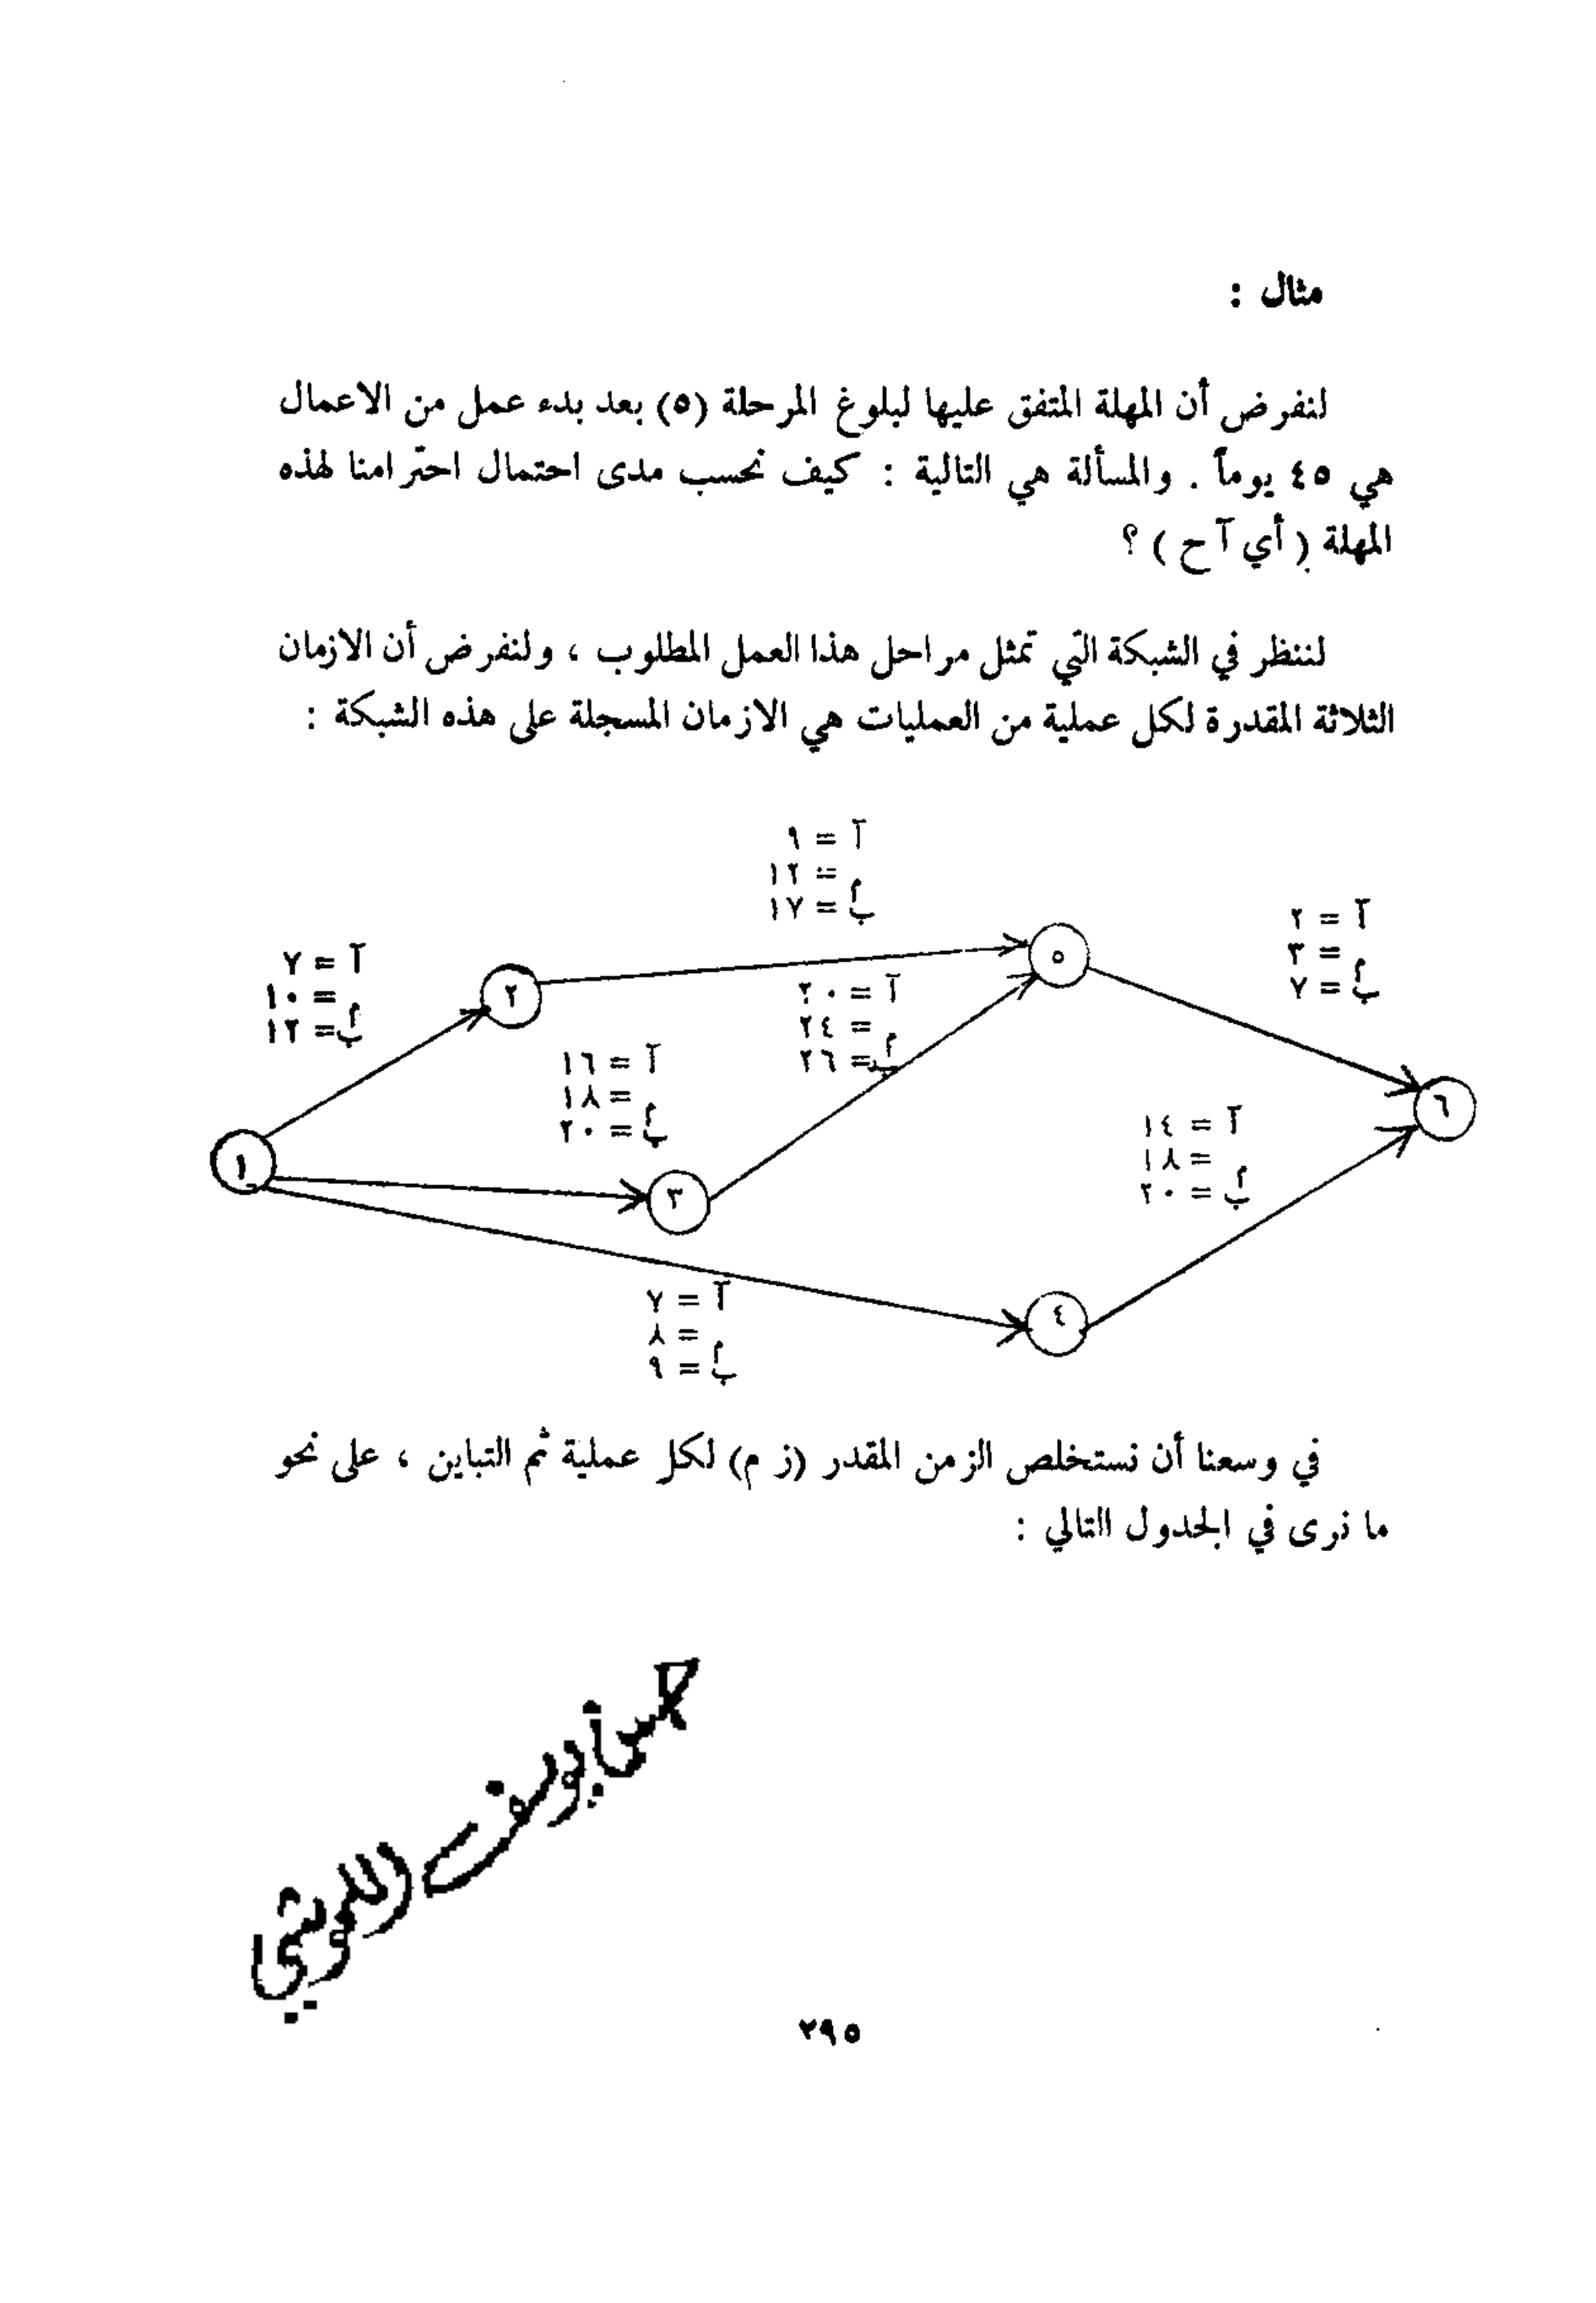 مثال :
لنفرض أن المهلة المتفق عليها لبلوغ المرحلة (٥) بعد بدء عمل من الاعمال
هي ٤٥ يوماً . والمسألة هي التالية : كيف نحسب مدى احتمال احترامنا لهذه
المهلة ( أي آ ح ) ؟
لننظر في الشبكة التي تمثل مراحل هذا العمل المطلوب ، ولنفرض أن الازمان
الثلاثة المقدرة لكل عملية من العمليات هي الازمان المسجلة على هذه الشبكة :
آ = ٩
م = ١٢
ب = ١٧
آ = ٢
م = ٣
ب = ٧
آ = ٧
م = ١٠
ب = ١٢
٢
٥
آ = ٢٠
م = ٢٤
ب = ٢٦
آ = ١٦
م = ١٨
ب = ٢٠
٦
آ = ١٤
م = ١٨
ب = ٢٠
١
٣
آ = ٧
م = ٨
ب = ٩
٤
في وسعنا أن نستخلص الزمن المقدر (ز م) لكل عملية ثم التباين ، على نحو
ما نرى في الجدول التالي :
٢٩٥